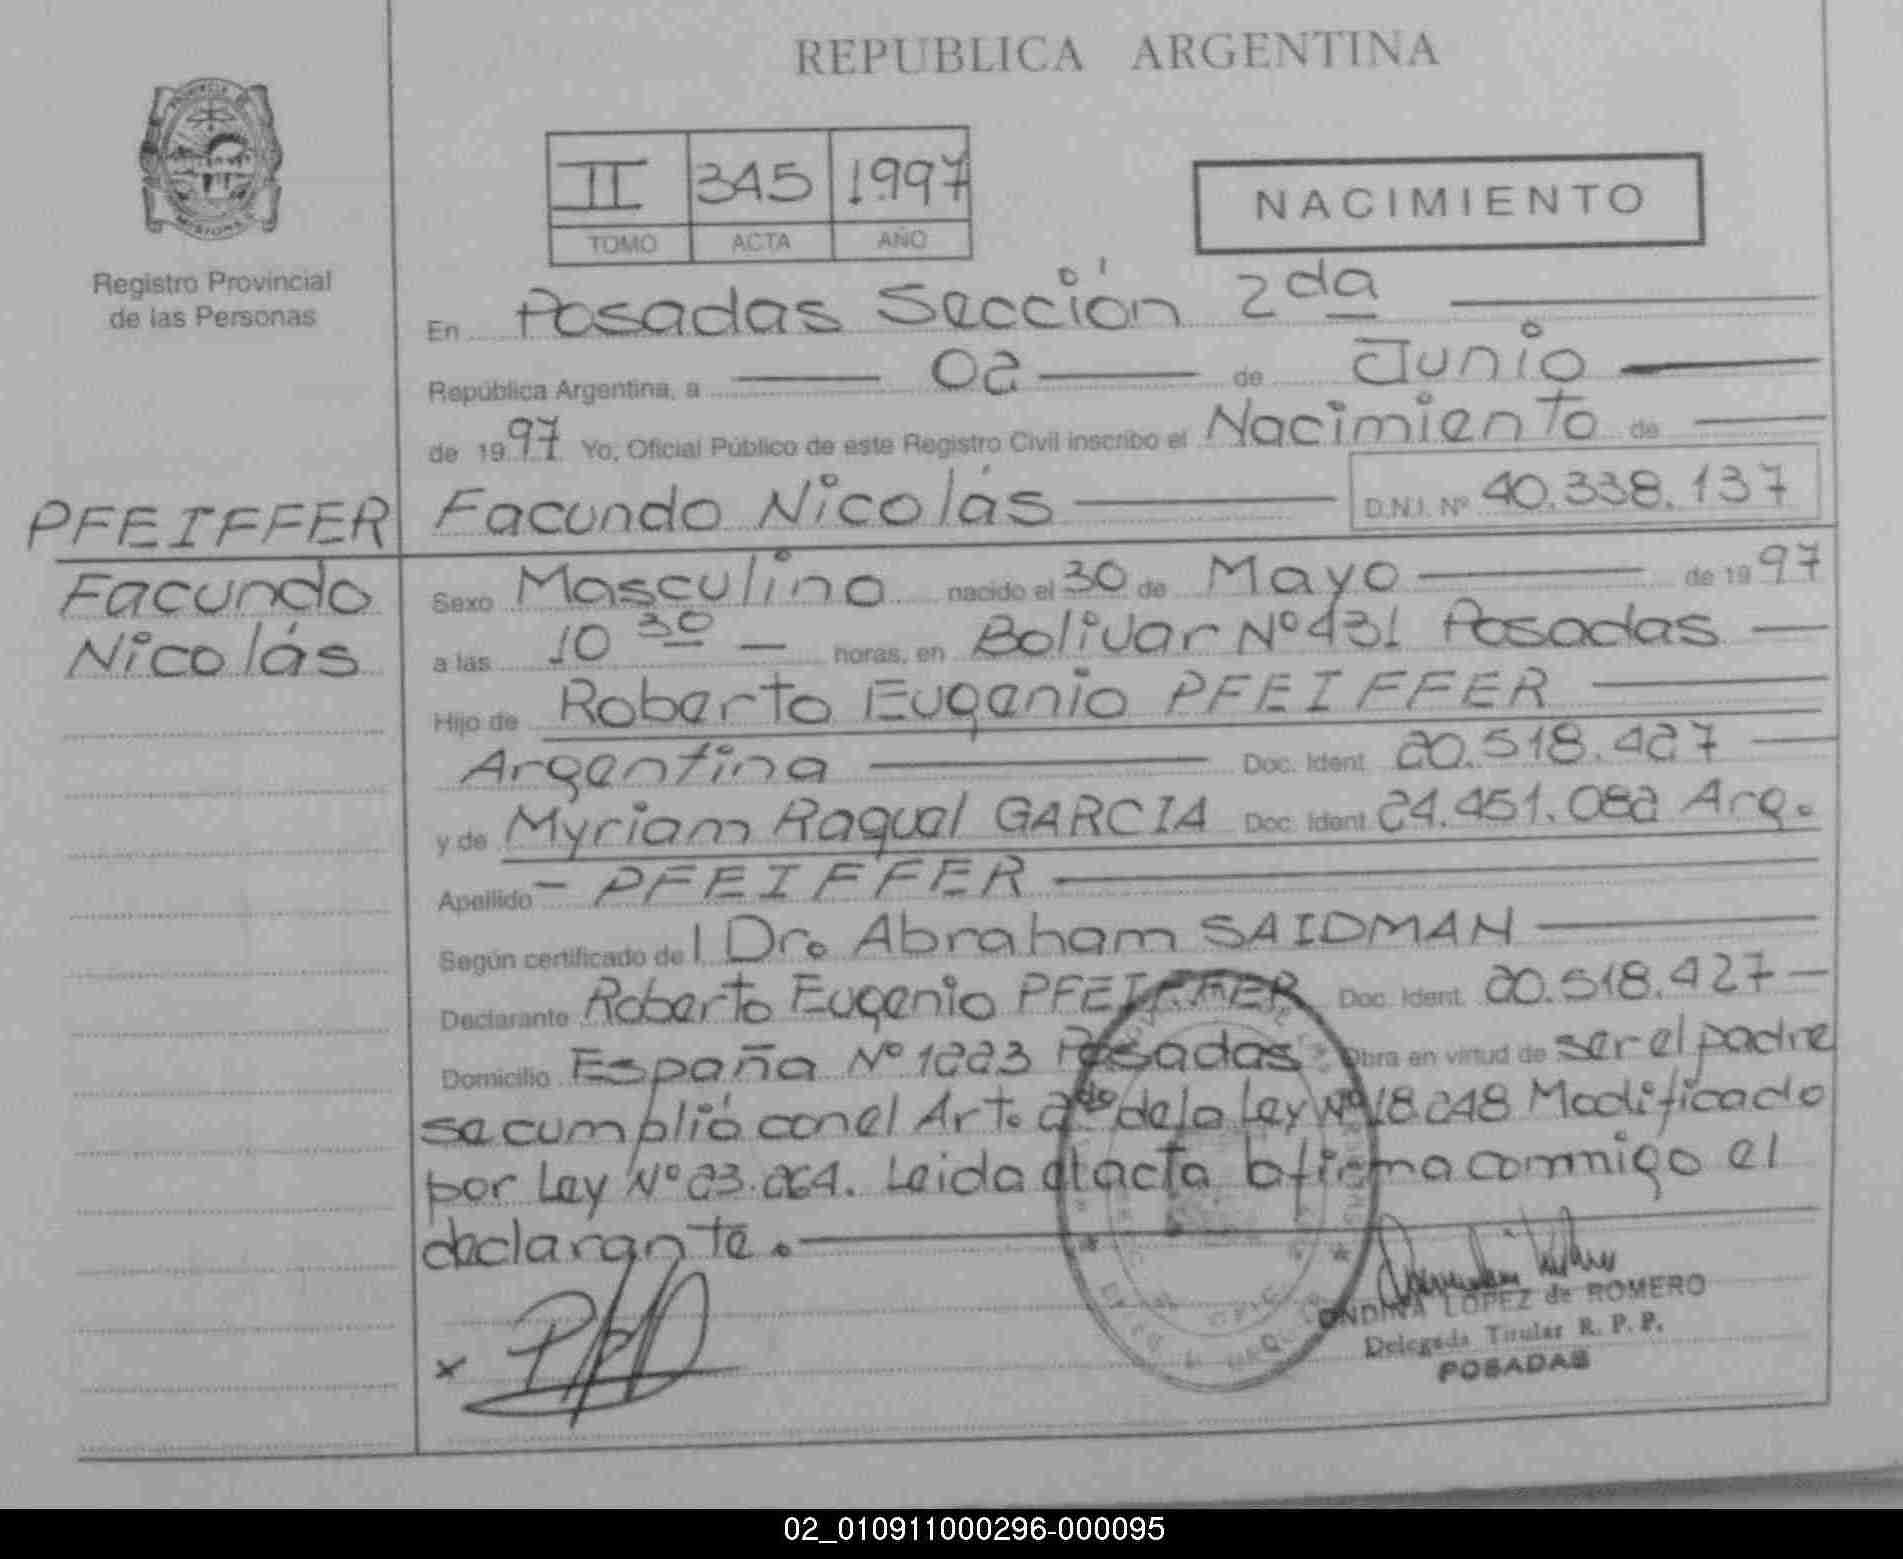 REPUBLICA ARGENTINA
II 345 1997
TOMO ACTA AÑO
NACIMIENTO
Registro Provincial
de las Personas
En Posadas Sección 2da
República Argentina, a 02 de Junio
de 1997 Yo, Oficial Público de este Registro Civil inscribo el Nacimiento de
PFEIFFER
Facundo
Nicolás
Facundo Nicolás D.N.I. Nº 40.338.137
Sexo Masculino nacido el 30 de Mayo de 1997
a las 10 30 horas, en Bolivar Nº 431 Posadas
Hijo de Roberto Eugenio PFEIFFER
Argentina Doc. Ident. 20.518.427
y de Myriam Raquel GARCIA Doc. Ident. 24.451.082 Arg.
Apellido - PFEIFFER
Según certificado del Dr. Abraham SAIDMAN
Declarante Roberto Eugenio PFEIFFER Doc. Ident. 20.518.427
Domicilio España Nº 1223 Posadas Obra en virtud de ser el padre
se cumplió con el Art. 2do de la Ley Nº 18.248 Modificado
por Ley Nº 23.264. Leida el acta la firma conmigo el
declarante.
x
ONDINA LOPEZ de ROMERO
Delegada Titular R. P. P.
POSADAS
02_010911000296-000095